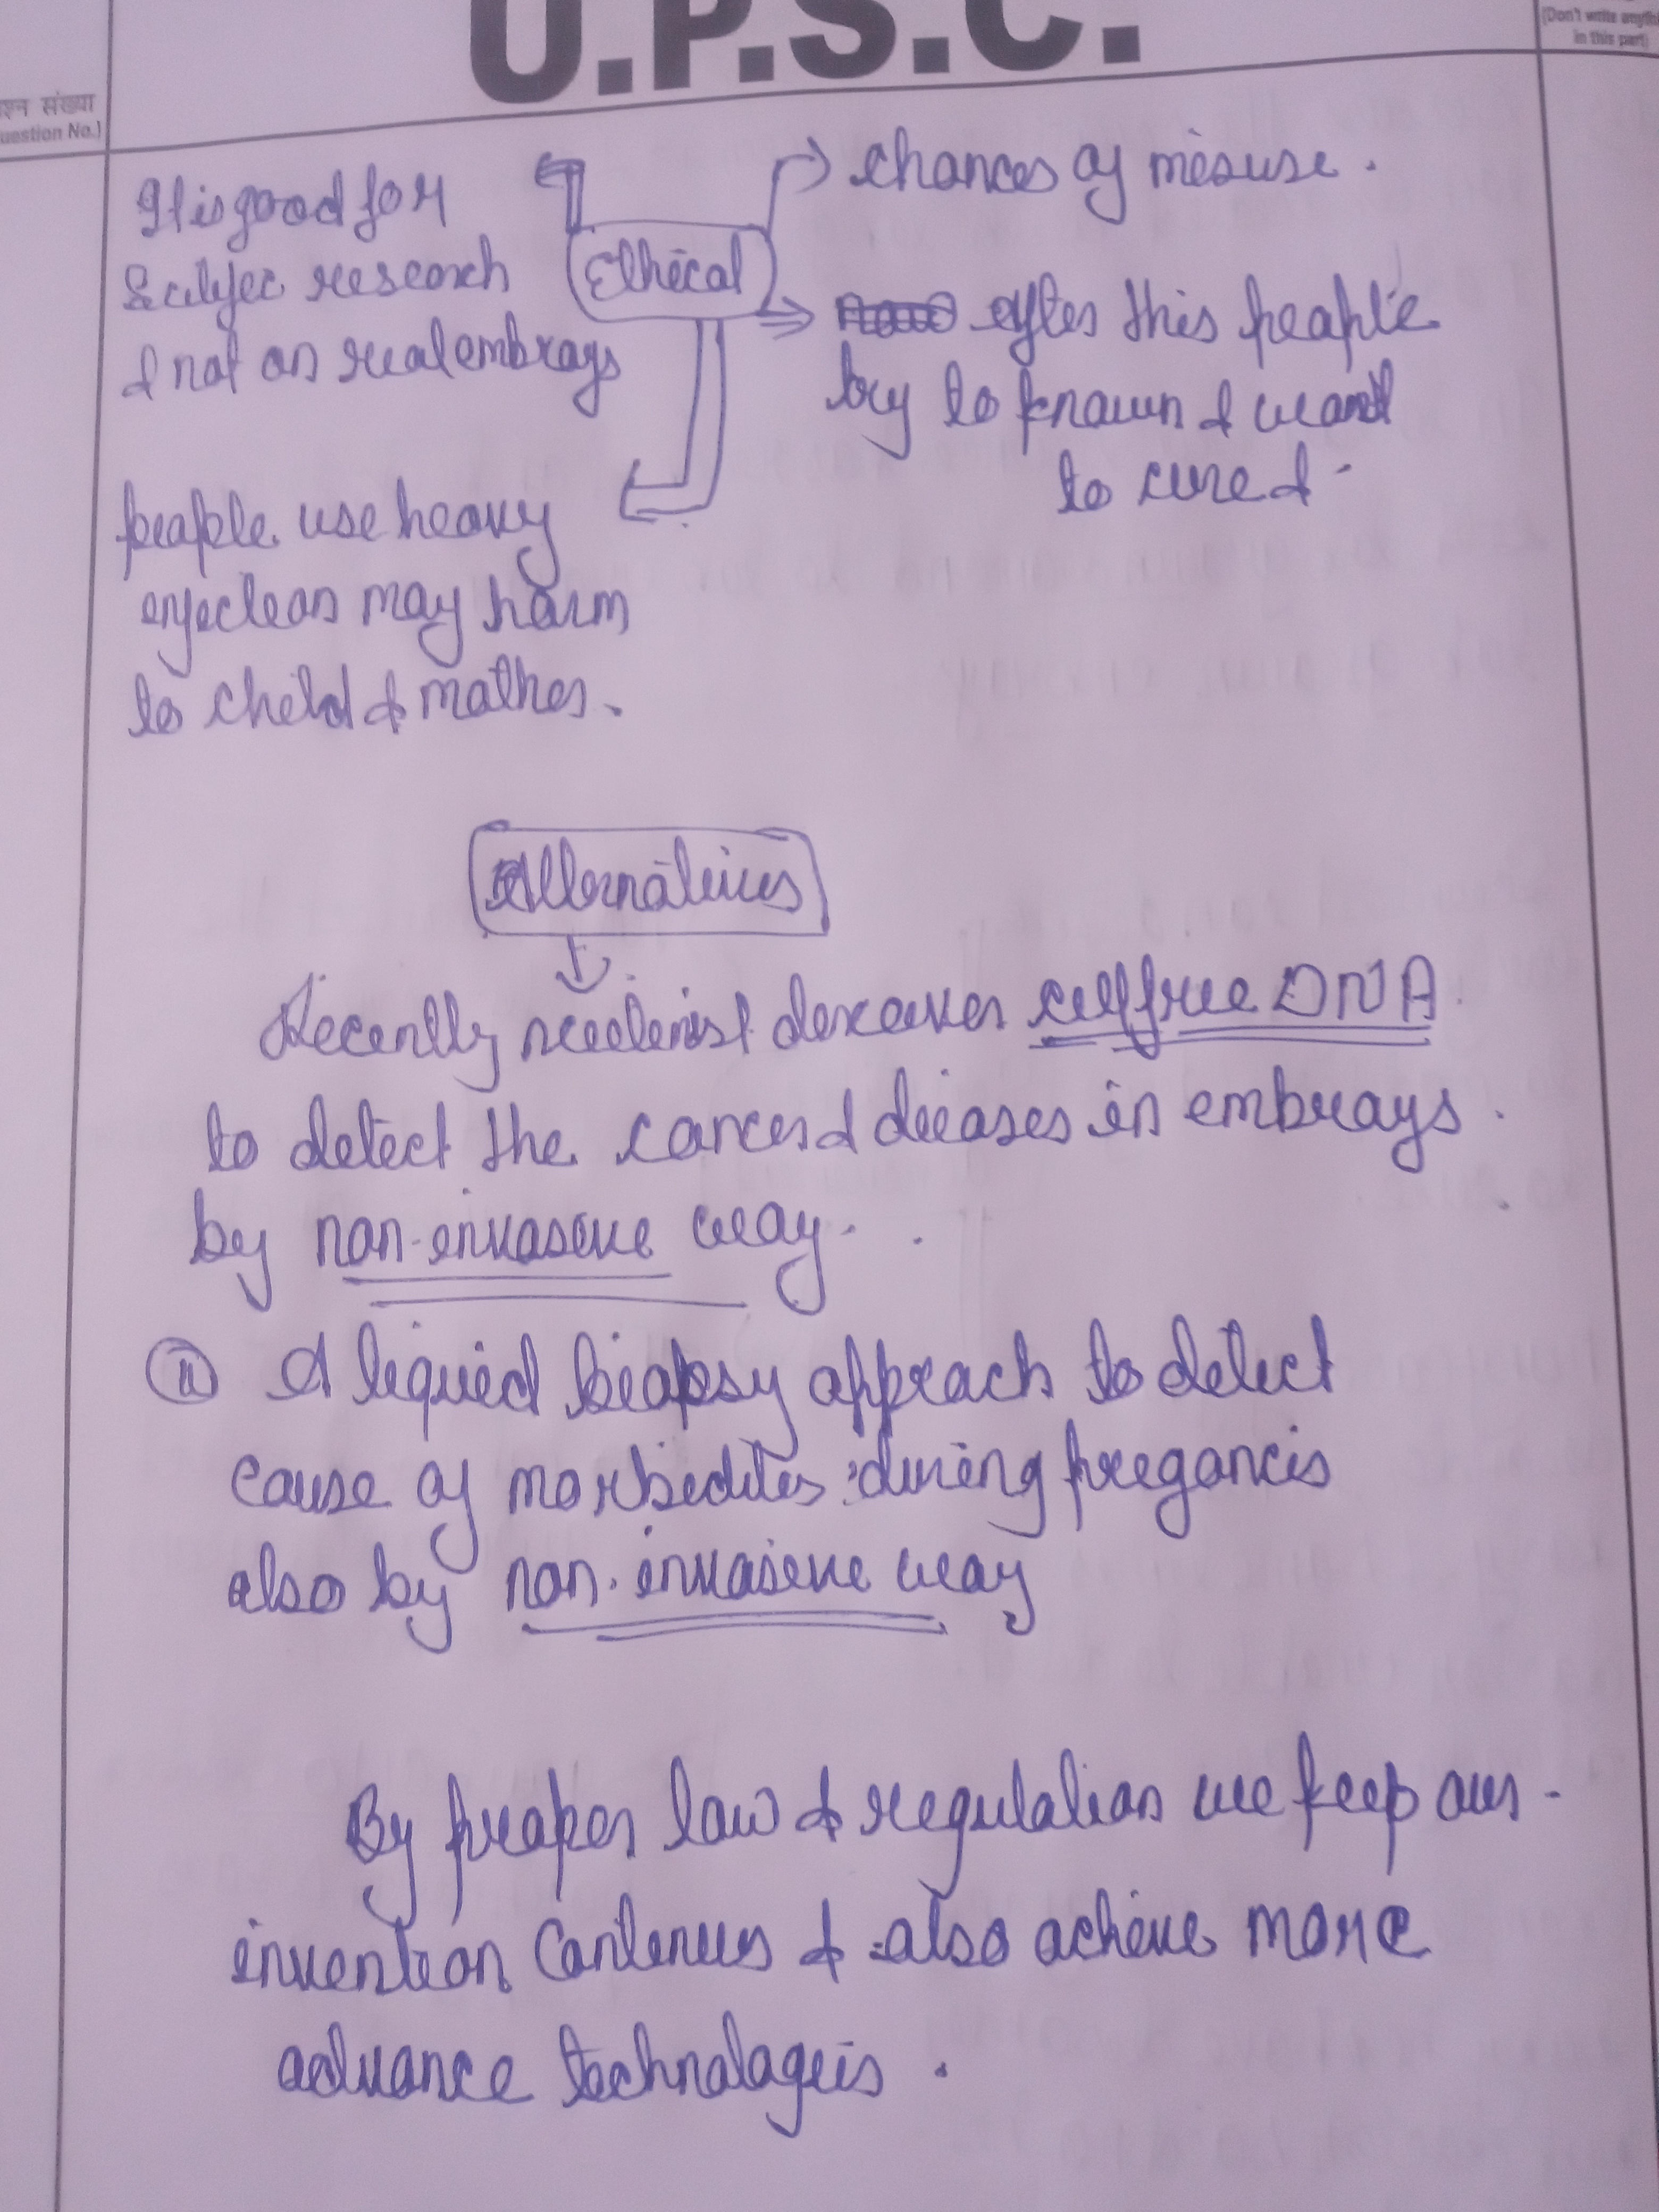 U.P.S.C.
(Don't write anythi
in this part)
श्न संख्या
uestion No.)
It is good for
subjec research
& not on real embrays
Ethical
chances of misuse.
after this people
try to known & want
to cured.
people use heavy
injection may harm
to child & mother.
Alternatives
Recently scientist discover cell free DNA
to detect the cancer & dieases in embrays.
by non-invasive way.
(ii) A liquid biopsy apprach to detect
cause of morbidites during pregancis
also by non-invasive way
By proper law & regulation we keep our
invention continues & also achive more
advance technologies.